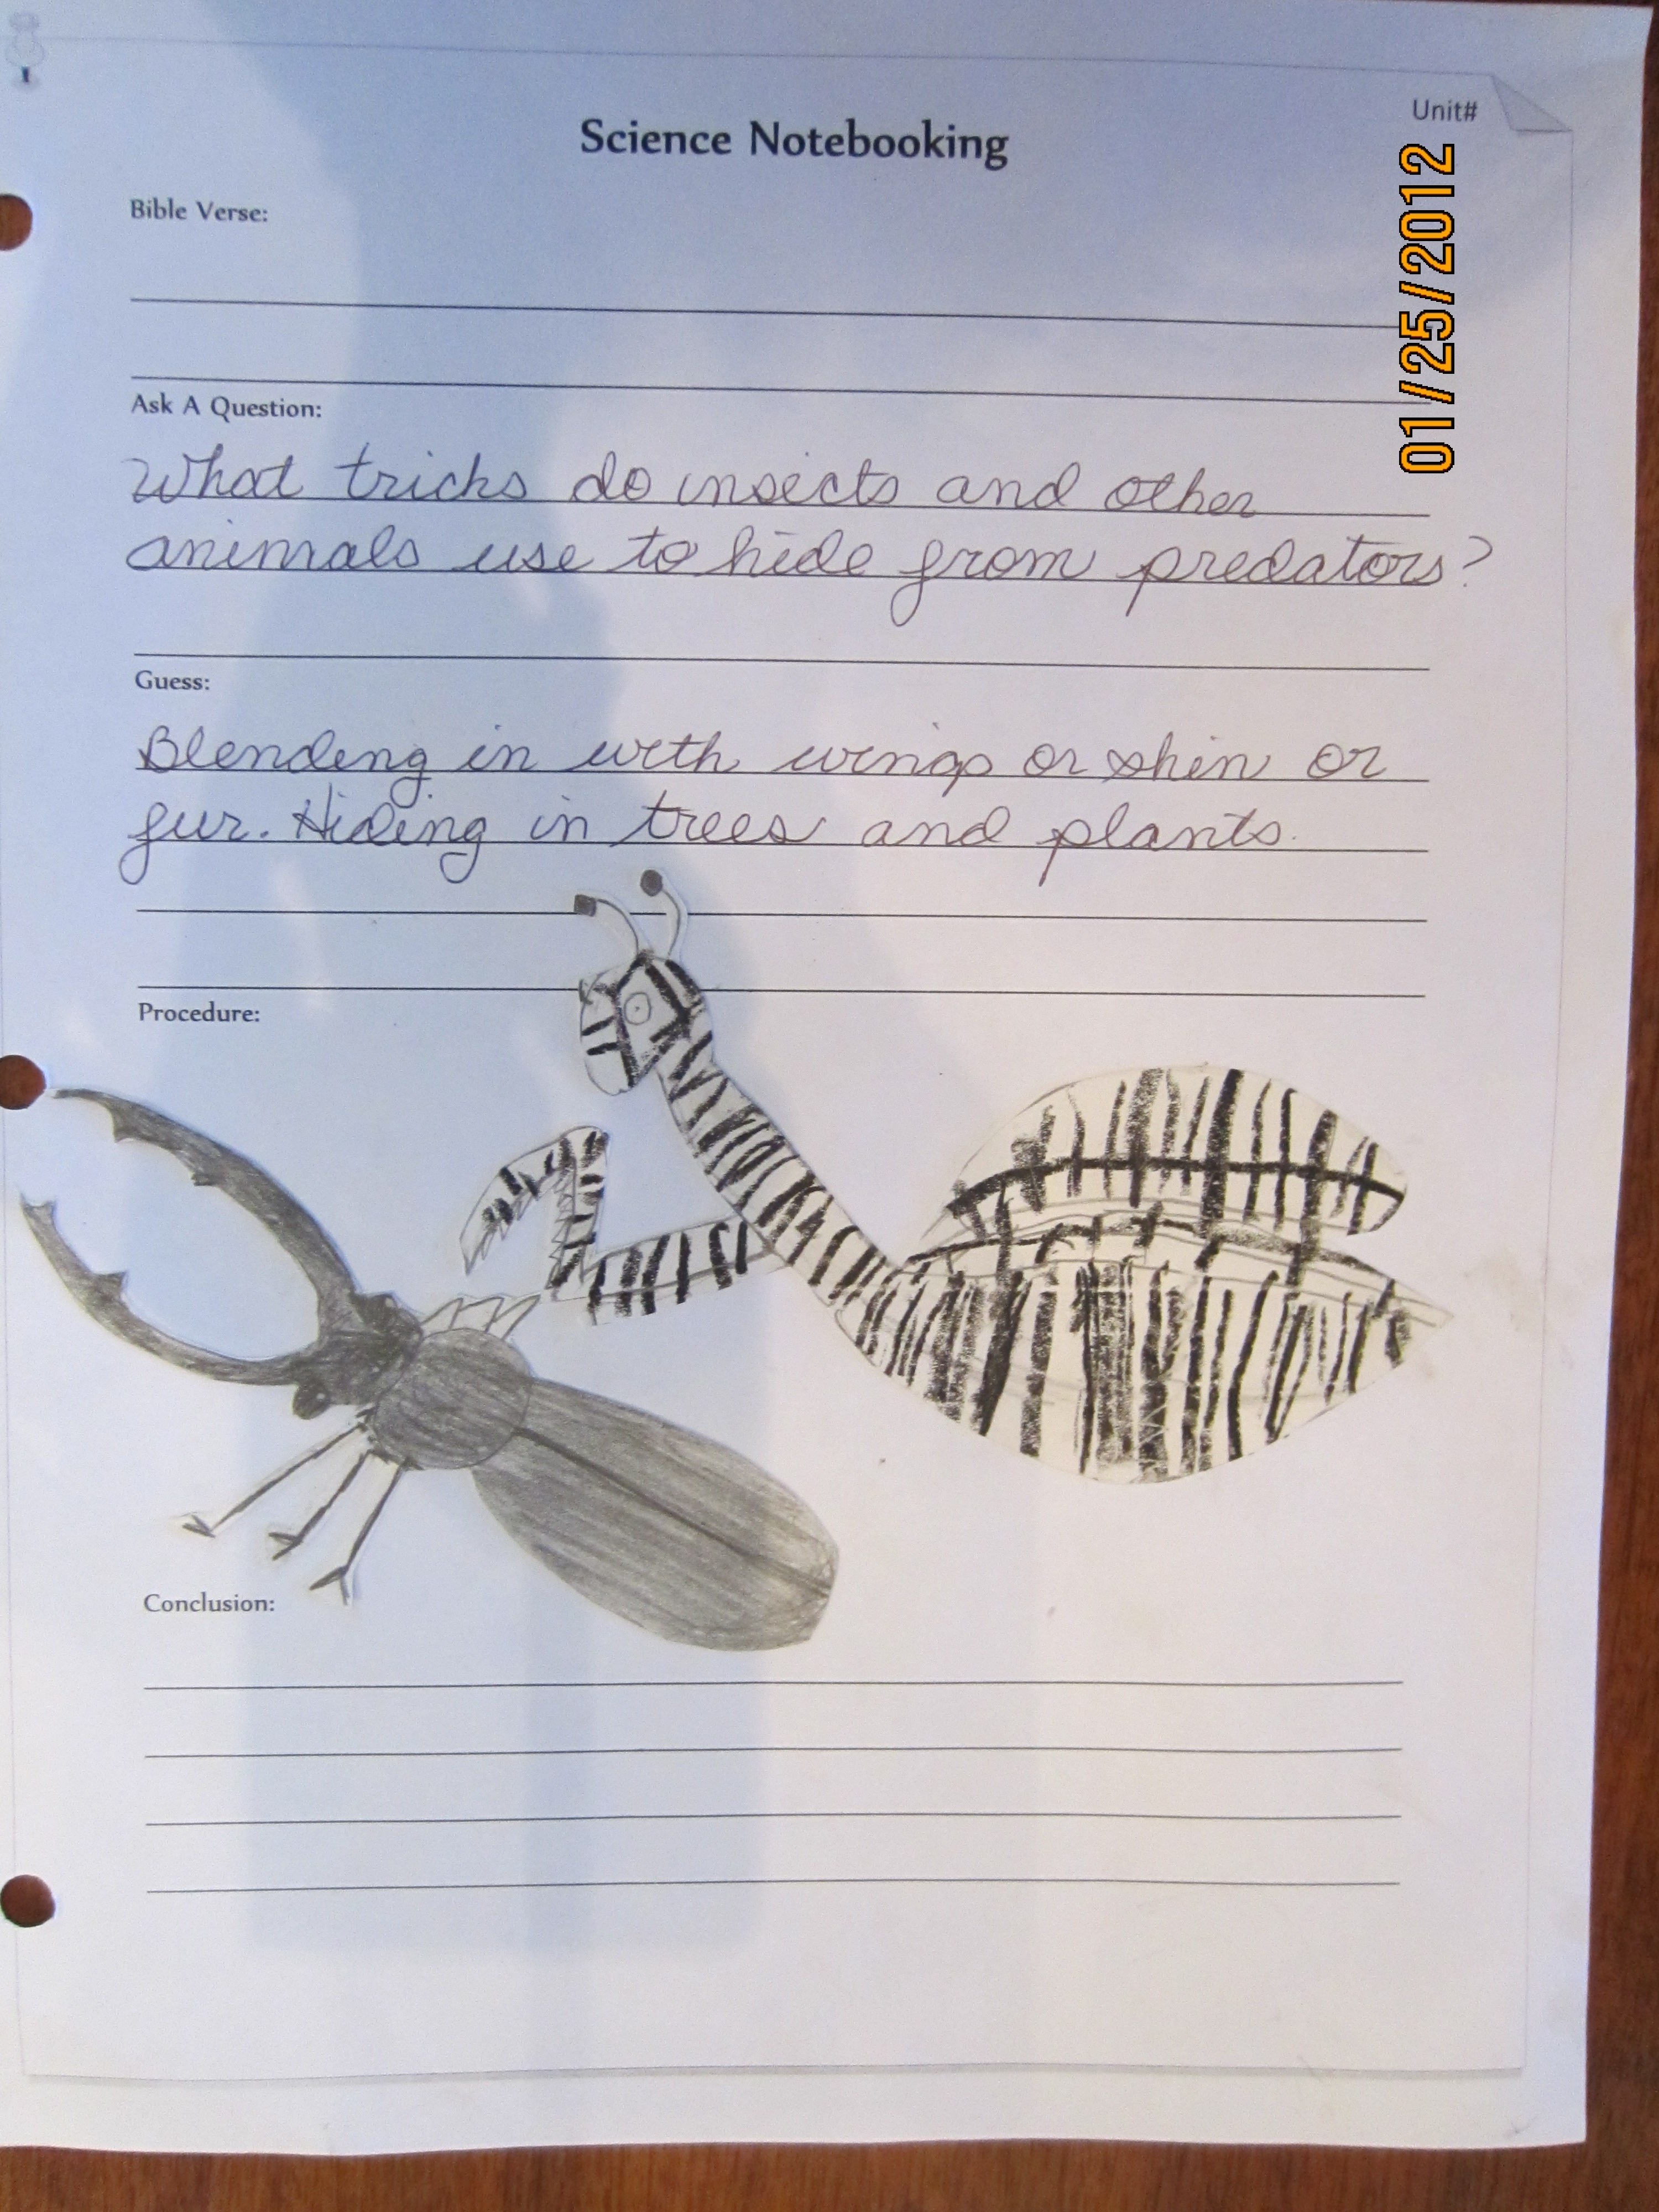 Unit#
Science Notebooking
01/25/2012
Bible Verse:
Ask A Question:
What tricks do insects and other
animals use to hide from predators?
Guess:
Blending in with wings or skin or
fur. Hiding in trees and plants.
Procedure:
Conclusion: